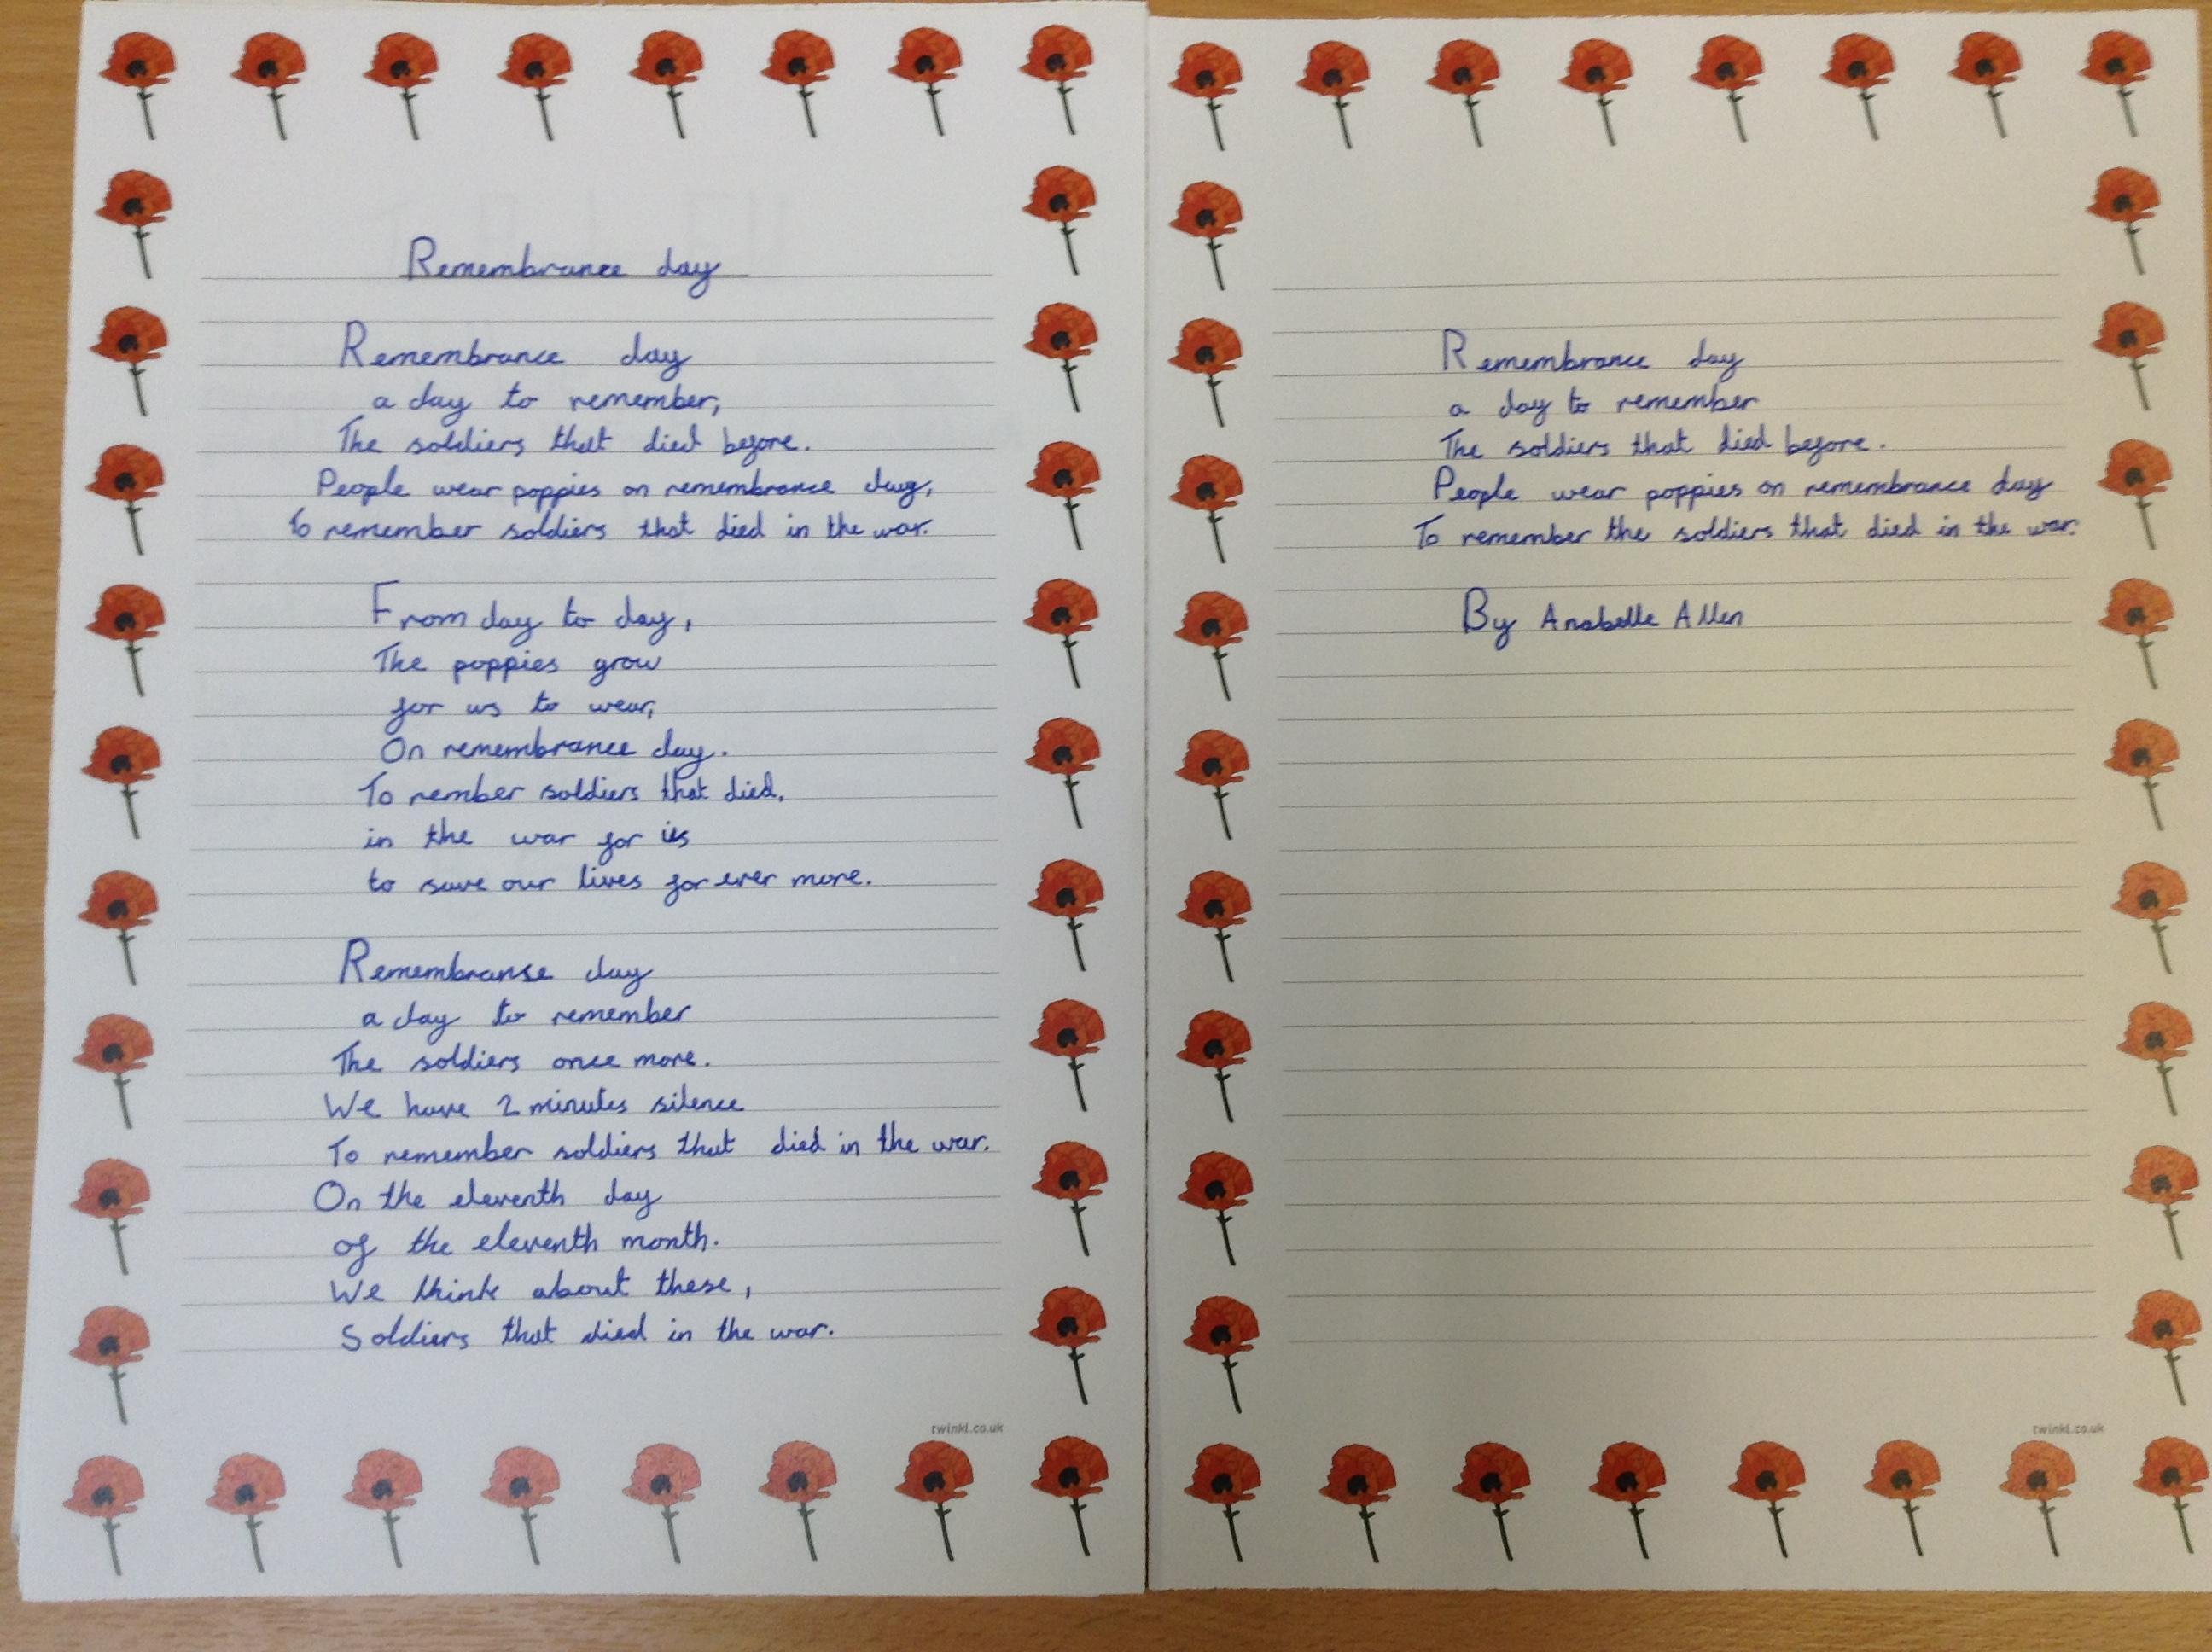 Remembrance day
Remembrance day
a day to remember,
The soldiers that died before.
People wear poppies on remembrance day,
To remember soldiers that died in the war.
From day to day,
The poppies grow
for us to wear,
On remembrance day.
To rember soldiers that died,
in the war for us
to save our lives for ever more.
Remembranse day
a day to remember
The soldiers once more.
We have 2 minutes silence
To remember soldiers that died in the war.
On the eleventh day
of the eleventh month.
We think about these,
Soldiers that died in the war.
twinkl.co.uk
Remembrance day
a day to remember
The soldiers that died before.
People wear poppies on remembrance day
To remember the soldiers that died in the war.
By Anabelle Allen
twinkl.co.uk